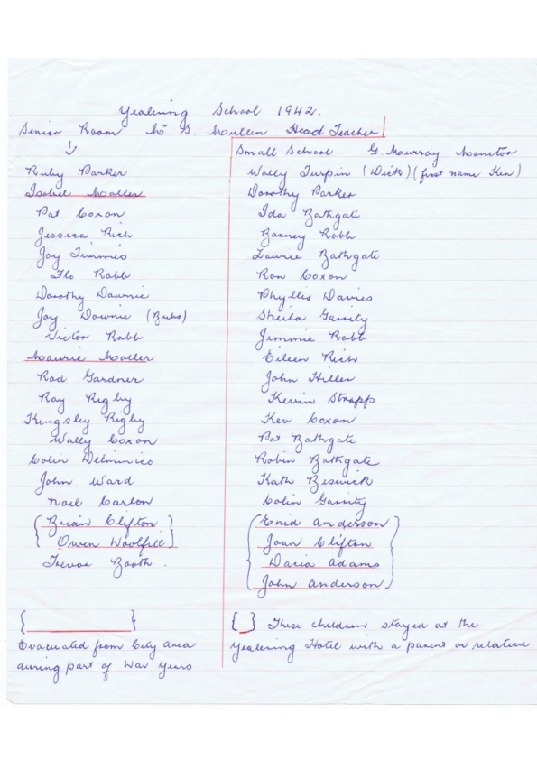 Yealering School 1942.
Senior Room Mr G. Mullen Head Teacher
Small School G. Murray Monitor
Ruby Parker
Isobel Moller
Pat Coxon
Jessica Rich
Joy Timmis
Flo Robb
Dorothy Downie
Joy Downie (Bubs)
Victor Robb
Maurie Moller
Rod Gardner
Ray Rigby
Kingsley Rigby
Wally Coxon
Colin
John Ward
Noel Carlon
{ Brian Clifton }
{ Owen Woolfitt }
Trevor Booth.
{ }
Evacuated from City area
during part of War Years
Wally Turpin (Dick) (first name Ken)
Dorothy Parker
Ida Bathgate
Barney Robb
Laurie Bathgate
Ron Coxon
Phyllis Davies
Sheila Garity
Jimmie Robb
Eileen Rich
John Hiller
Kerrin Strapp
Kev Coxon
Pat Bathgate
Robin Bathgate
Kath Beswick
Colin Garity
{ Enid Anderson }
Joan Clifton
Daria Adams
John Anderson
{ } These children stayed at the
Yealering Hotel with a parent or relative